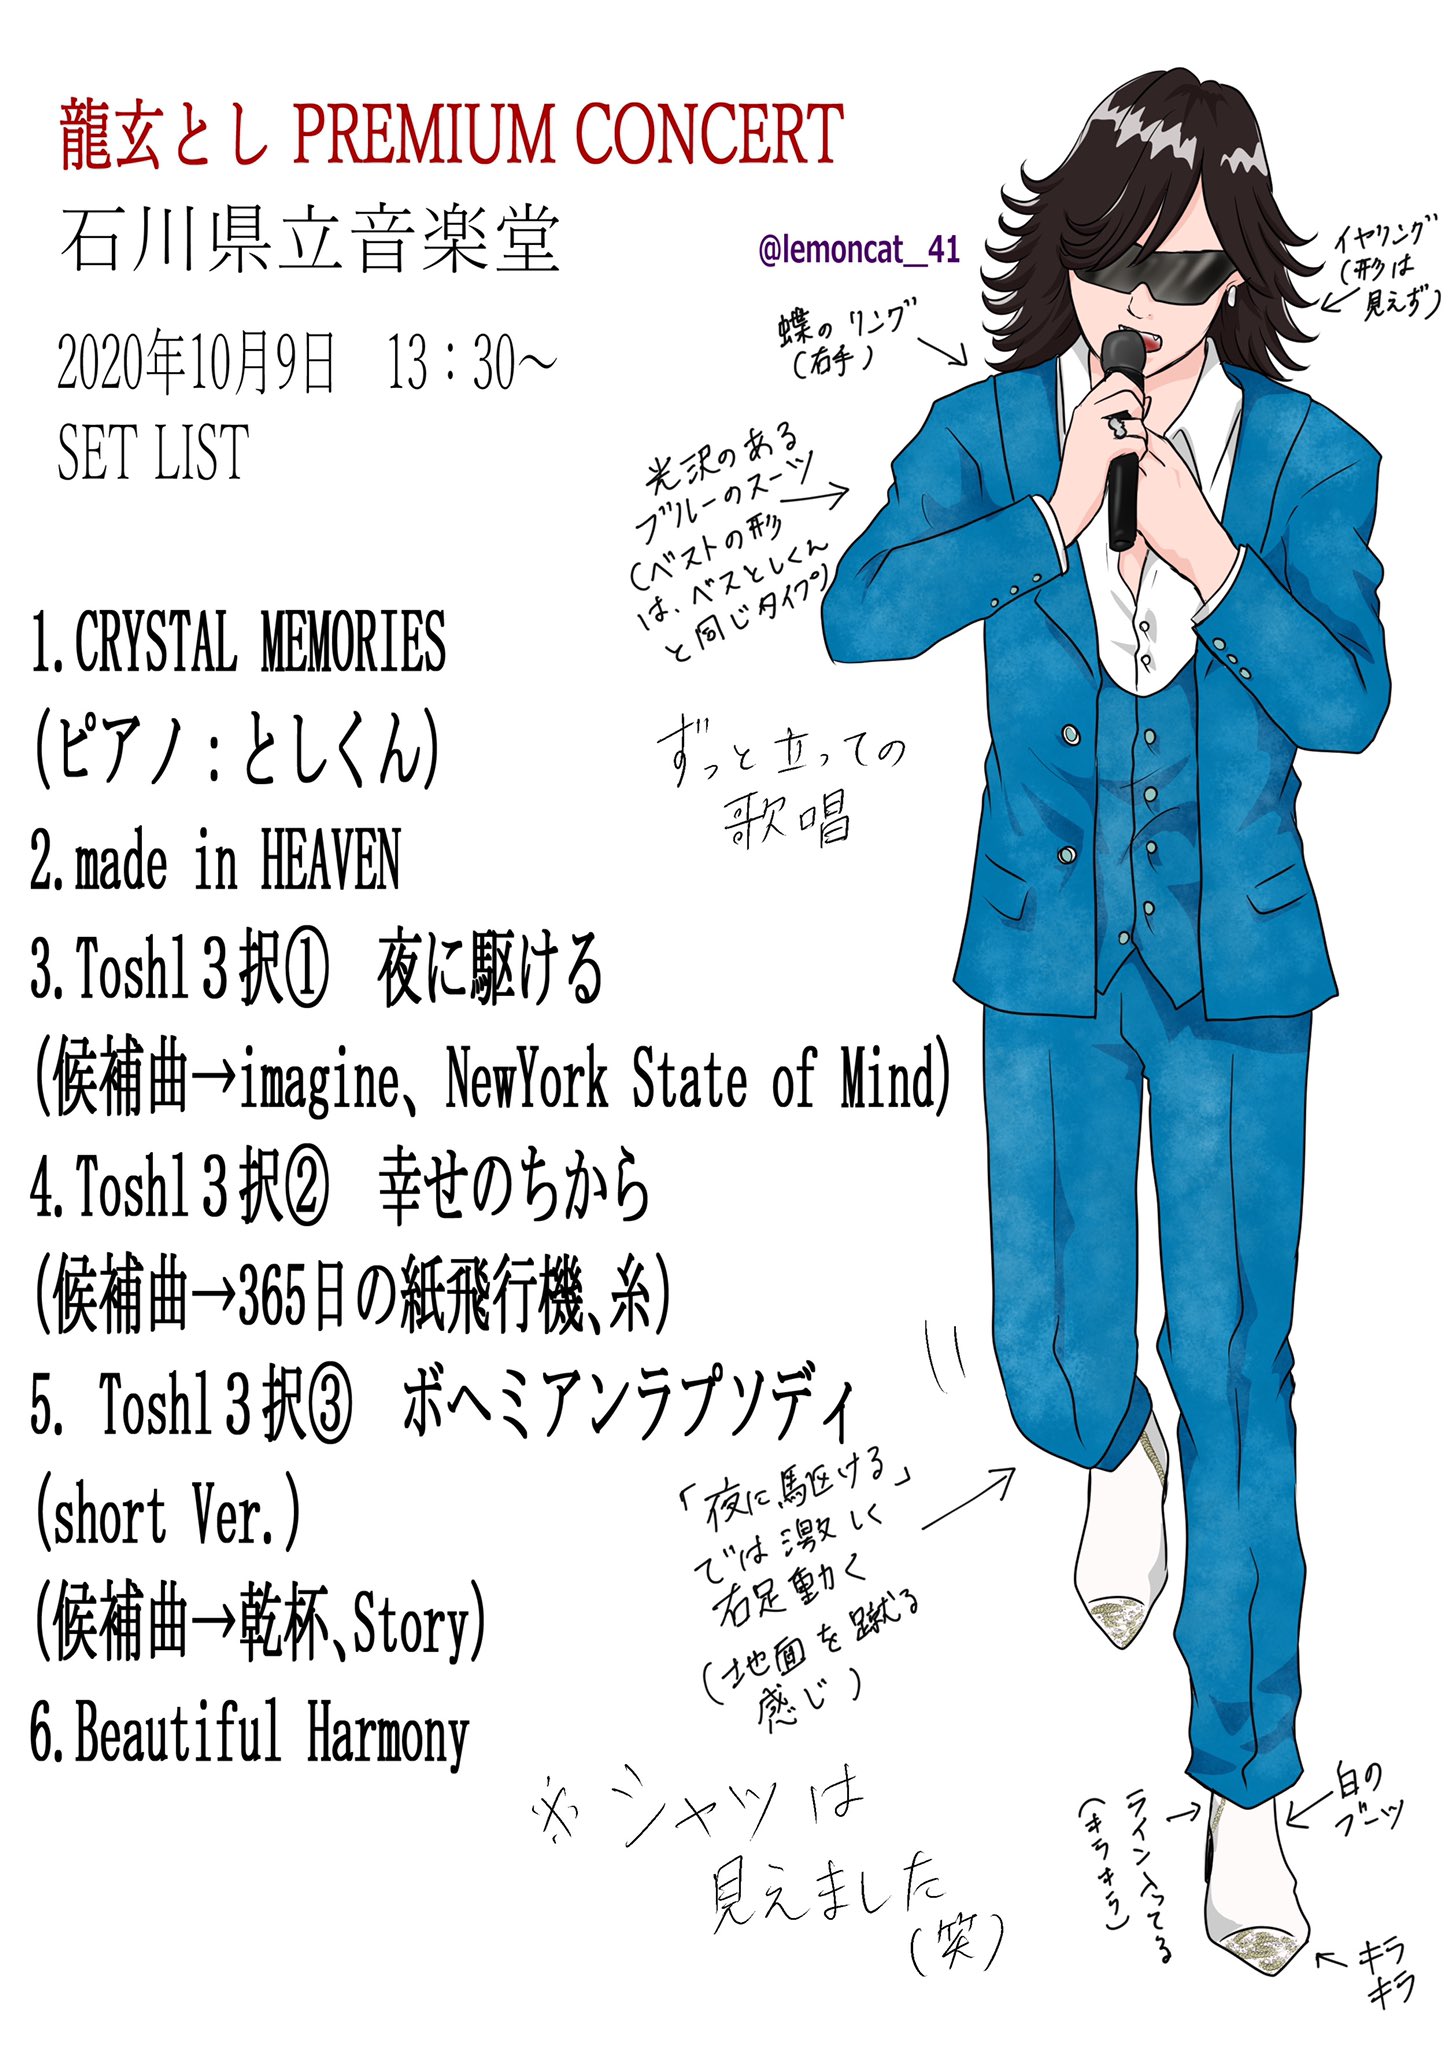 龍玄とし PREMIUM CONCERT
石川県立音楽堂
2020年10月9日　13：30～
SET LIST
@lemoncat__41
イヤリング
(形は
見えず)
蝶のリング
(右手)
光沢のある
ブルーのスーツ
(ベストの形
は、ベスとしくん
と同じタイプ)
ずっと立っての
歌唱
1.CRYSTAL MEMORIES
(ピアノ：としくん)
2.made in HEAVEN
3.Toshl３択①　夜に駆ける
(候補曲→imagine、NewYork State of Mind)
4.Toshl３択②　幸せのちから
(候補曲→365日の紙飛行機、糸)
5. Toshl３択③　ボヘミアンラプソディ
(short Ver.)
(候補曲→乾杯、Story)
6.Beautiful Harmony
「夜に駆ける」
では激しく
右足動く
(地面を蹴る
感じ)
※シャツは
見えました
(笑)
ライン入ってる
(キラキラ)
白の
ブーツ
キラ
キラ